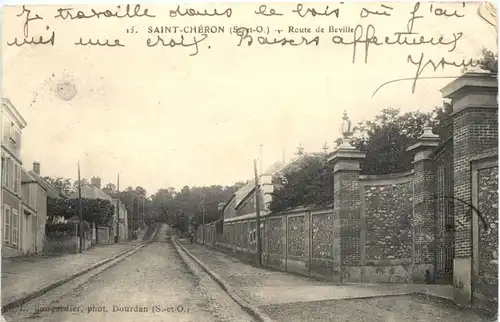 Je travaille dans le bois où j'ai
mis une croix. Baisers affectueux
Yvonne
15. SAINT-CHÉRON (S.-et-O.) - Route de Beville
L. Bougardier, phot. Dourdan (S.-et-O.)